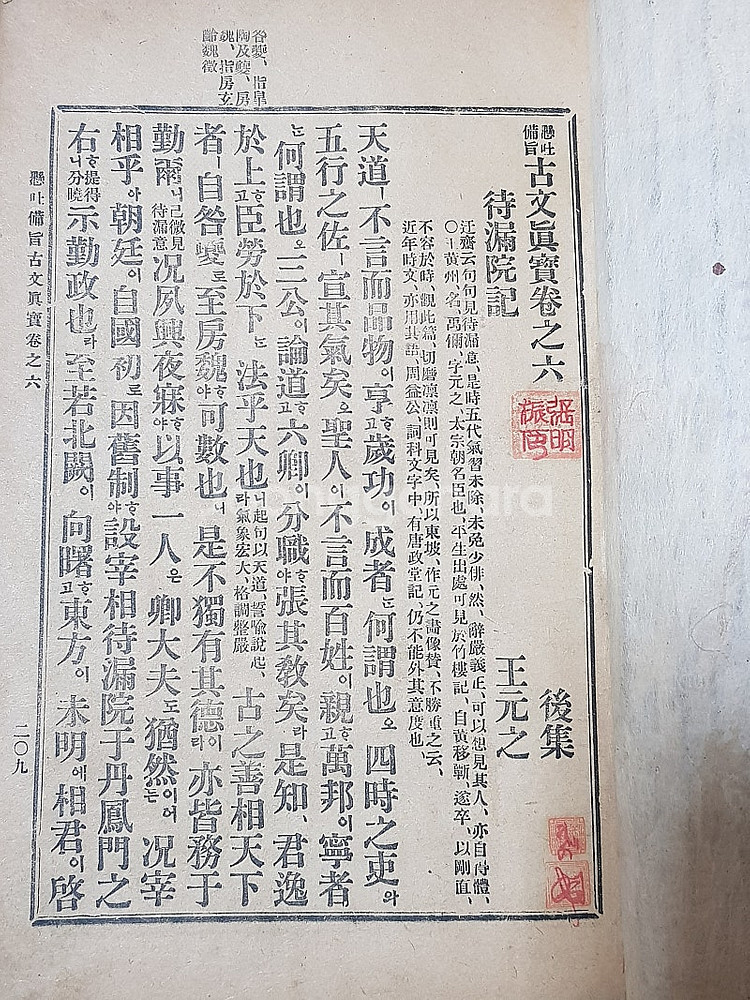 咎夔、指皐
陶及夔、房
魏、指房玄
齡魏徵
懸吐備旨古文眞寶卷之六 後集
張明振印
待漏院記 王元之
迂齋云句句見待漏意、是時五代氣習未除、未免少俳、然、辭嚴義正、可以想見其人、亦自得體、
○王黃州、名、禹偁、字元之、太宗朝名臣也、平生出處可見於竹樓記、自黃移蘄、遂卒、以剛直、
不容於時、觀此篇、切磨凛凛則可見矣、所以東坡、作元之畵像贊、不勝重之云、
近年時文、亦用其語、周益公、詞科文字中、有唐政堂記、仍不能外其意度也、
天道ㅣ不言而品物이亨ᄒᆞ고歲功이成者ᄂᆞᆫ何謂也오四時之吏와
五行之佐ㅣ宣其氣矣오聖人이不言而百姓이親ᄒᆞ고萬邦이寧者
ᄂᆞᆫ何謂也오三公이論道ᄒᆞ고六卿이分職ᄒᆞ야張其敎矣라是知、君逸
於上ᄒᆞ고臣勞於下ᄂᆞᆫ法乎天也니起句以天道、譬喩說起、라氣象宏大、格調整嚴古之善相天下
者ㅣ自咎夔로至房魏ᄒᆞ야可數也니是不獨有其德이라亦皆務于
勤爾니已微見待漏意况夙興夜寐ᄒᆞ야以事一人은卿大夫도猶然이어든况宰
相乎아朝廷이自國初로因舊制ᄒᆞ야設宰相待漏院于丹鳳門之
右ᄒᆞ니提得分曉示勤政也라至若北闕이向曙ᄒᆞ고東方이未明에相君이啓
懸吐備旨古文眞寶卷之六
二〇九